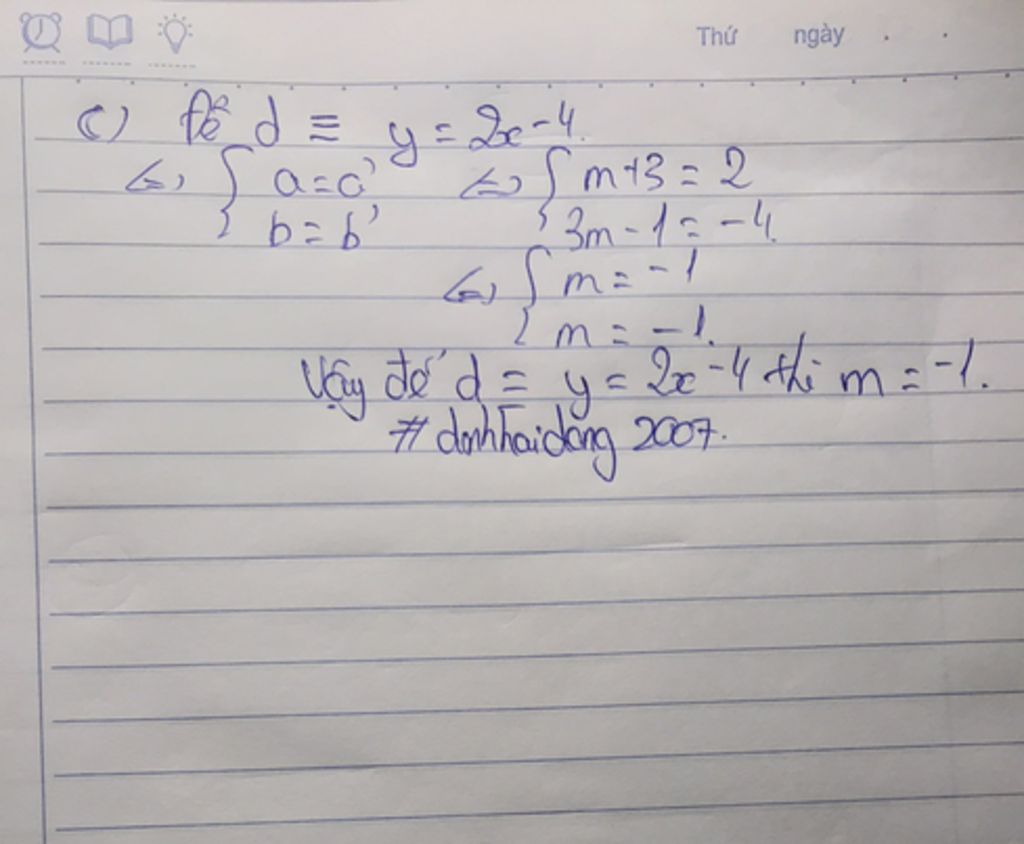 Thứ ngày . .
c) Để d ≡ y = 2x - 4.
<=> { a = a' <=> { m + 3 = 2
b = b' 3m - 1 = -4
<=> { m = -1
m = -1.
Vậy để d ≡ y = 2x - 4 thì m = -1.
# dinhhaidang 2007.